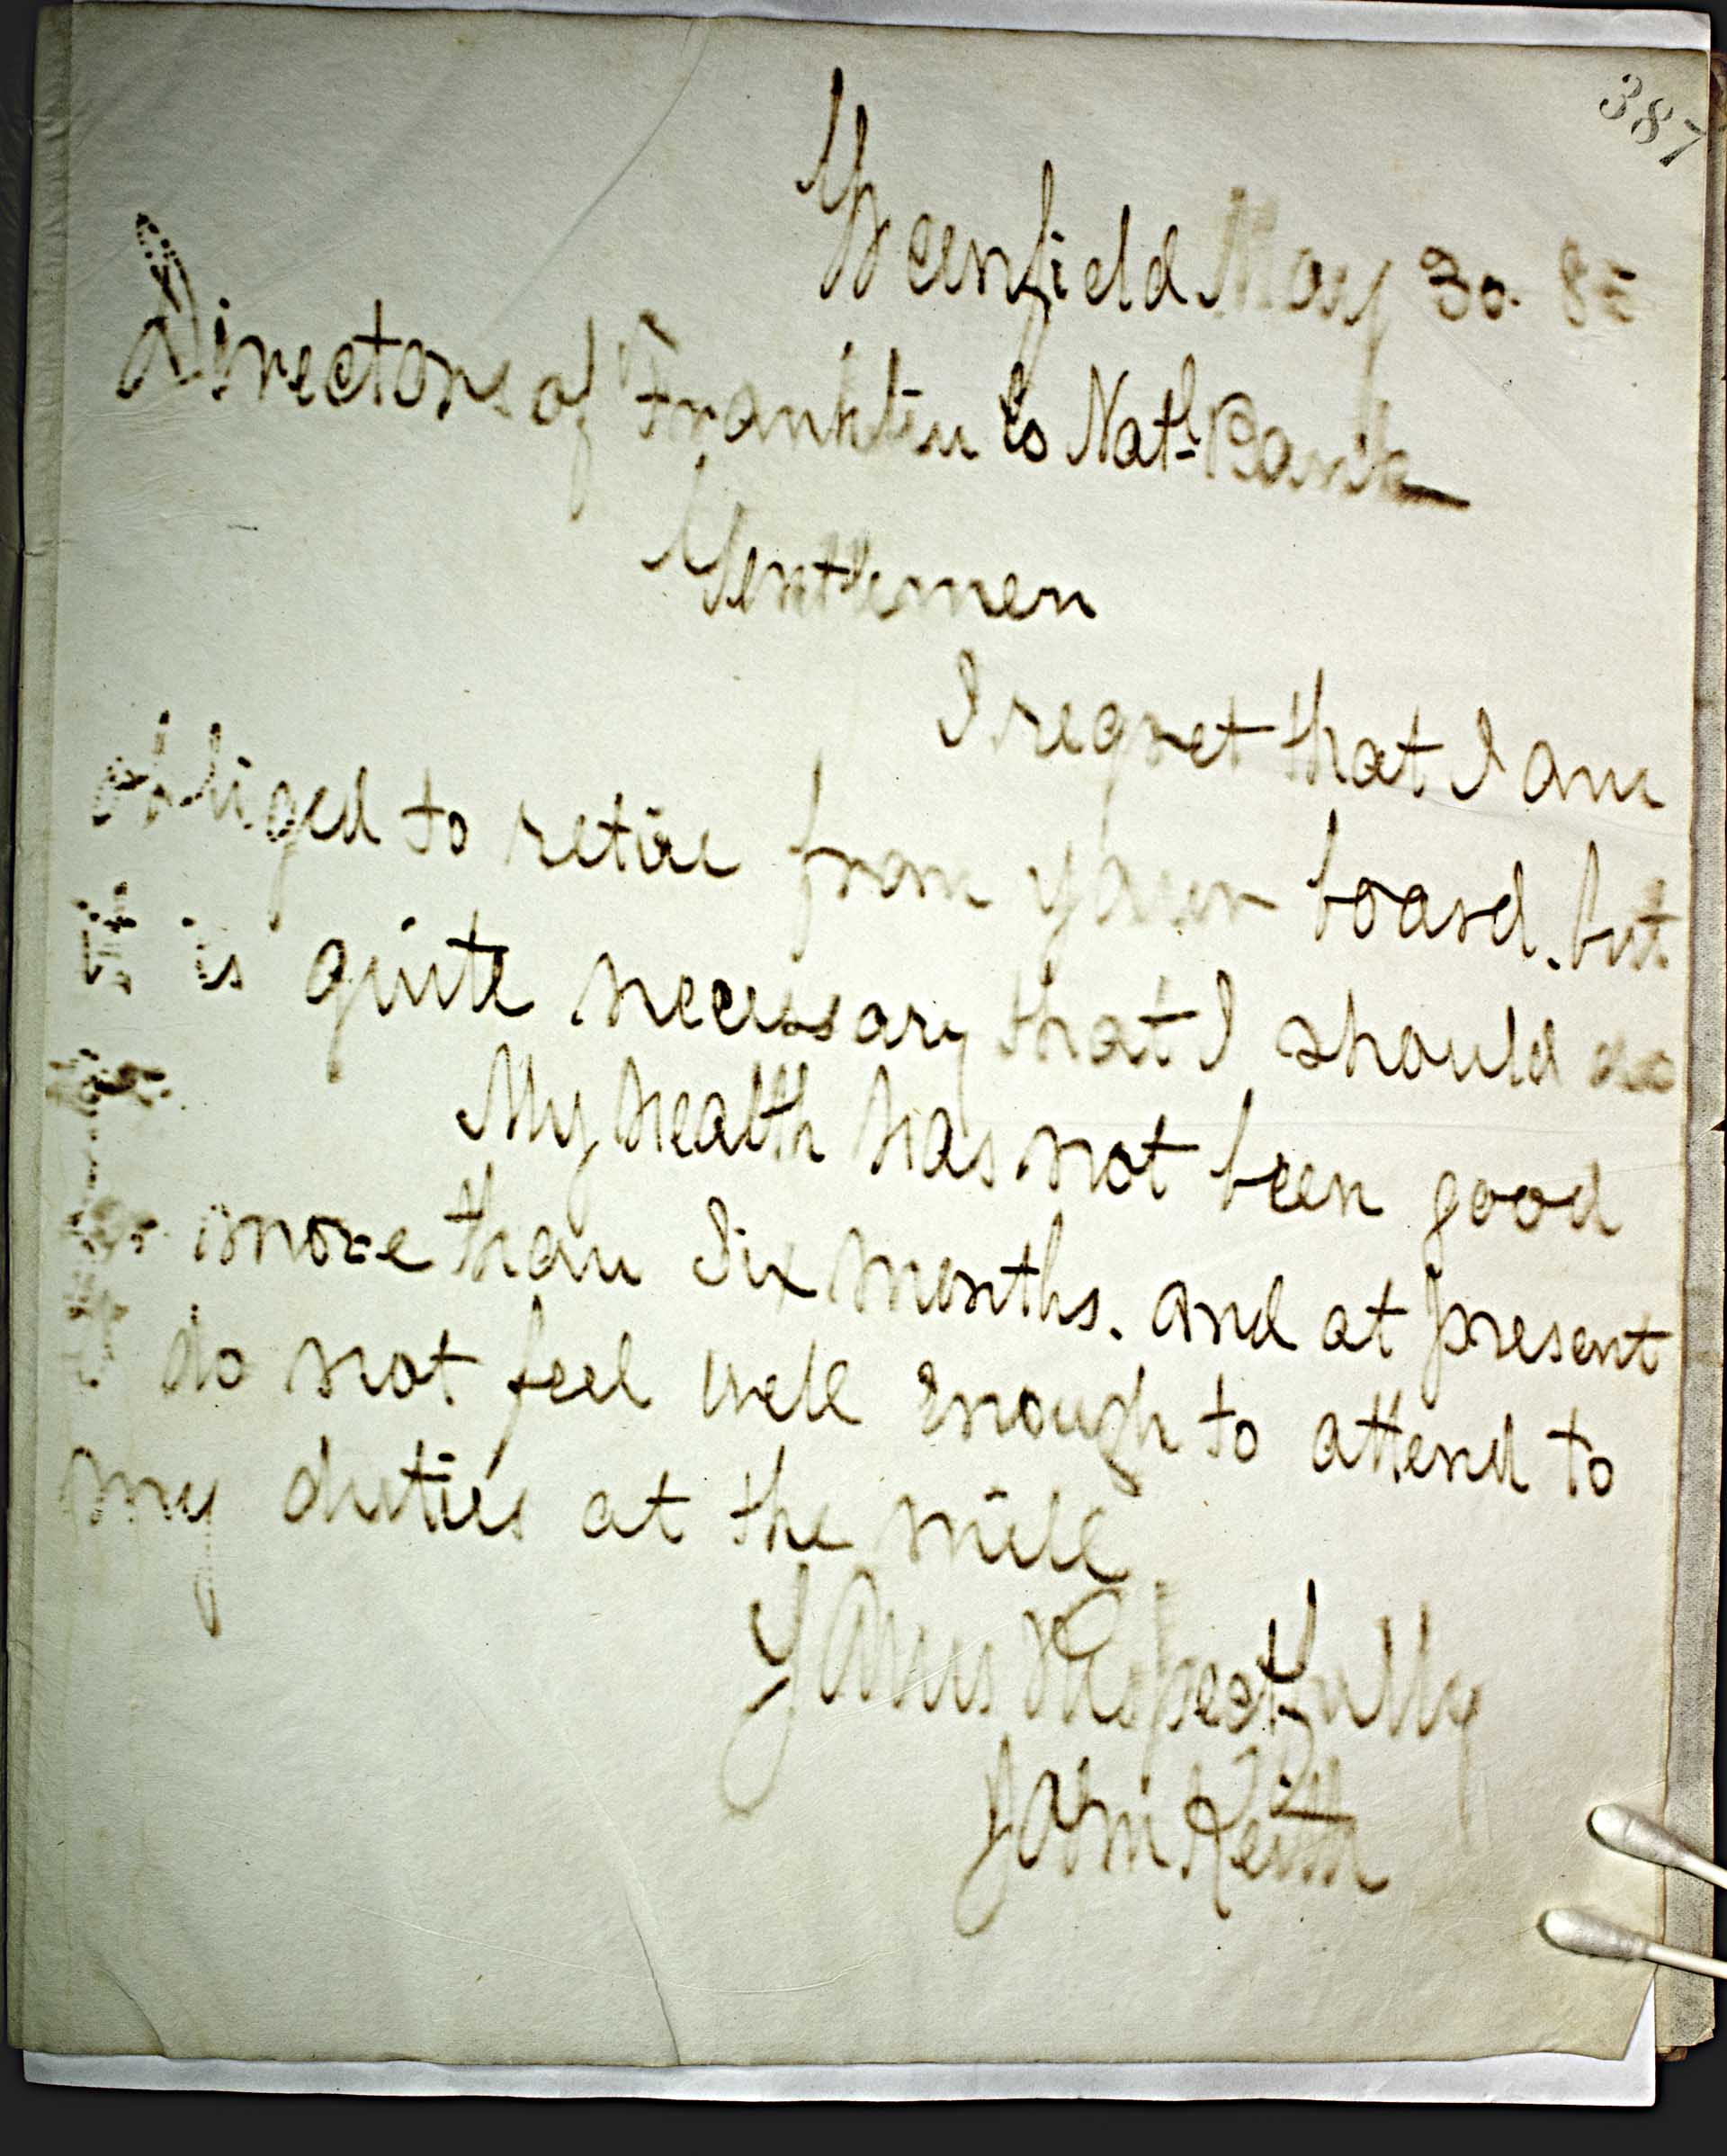 387
Greenfield May 30. 85
Directors of Franklin Co Natl Bank
Gentlemen
I regret that I am
obliged to retire from your board. but
it is quite necessary that I should do
My health has not been good
for more than six months. and at present
I do not feel well enough to attend to
my duties at the mill
Yours Respectfully
John Keith